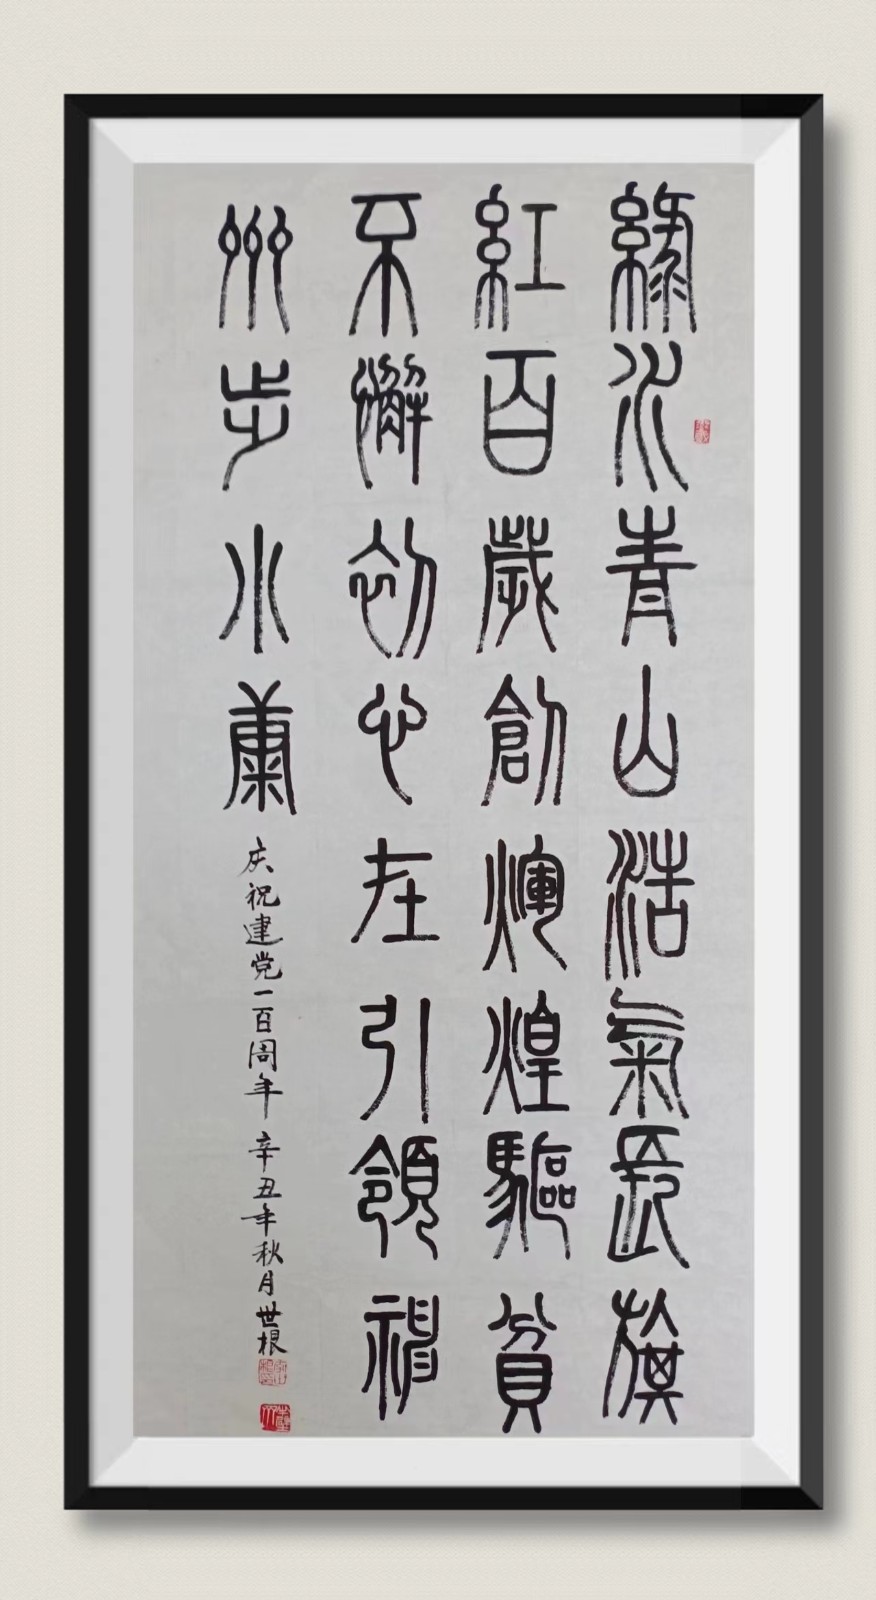 綠水青山浩氣長旗
紅百歲創輝煌驅貧
不懈初心在引領神
州步小康
庆祝建党一百周年 辛丑年秋月 世根